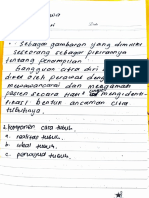 wa
ri
- Sebagai gambaran yang dimiliki
seseorang sebagai pikirannya
tentang penampilan
Gangguan citra diri
dicek oleh perawat dengan
mewawancarai dan mengamati
pasien secara hati² mengidenti-
fikasi bentuk ancaman citra
tubuhnya.
2. Komponen citra tubuh.
a. realitas tubuh.
b. ideal tubuh.
c.